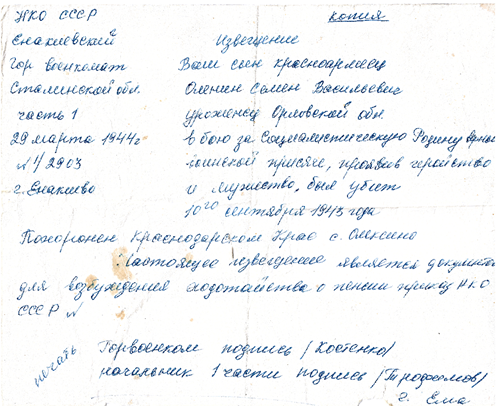 НКО СССР
копия
Енакиевский
Гор военкомат
Сталинской обл.
часть 1
29 марта 1944г
№ 1/2903
г. Енакиево
Извещение
Ваш сын красноармеец
Оленин Семен Васильевич
уроженец Орловской обл.
в бою за Социалистическую Родину верный
воинской присяге, проявив геройство
и мужество, был убит
10го сентября 1943 года
Похоронен Краснодарском Крае с.
Настоящее извещение является документом
для возбуждения ходотайства о пенсии приказ НКО
СССР №
печать
Горвоенком подпись /Костенко/
начальник 1 части подпись
г.